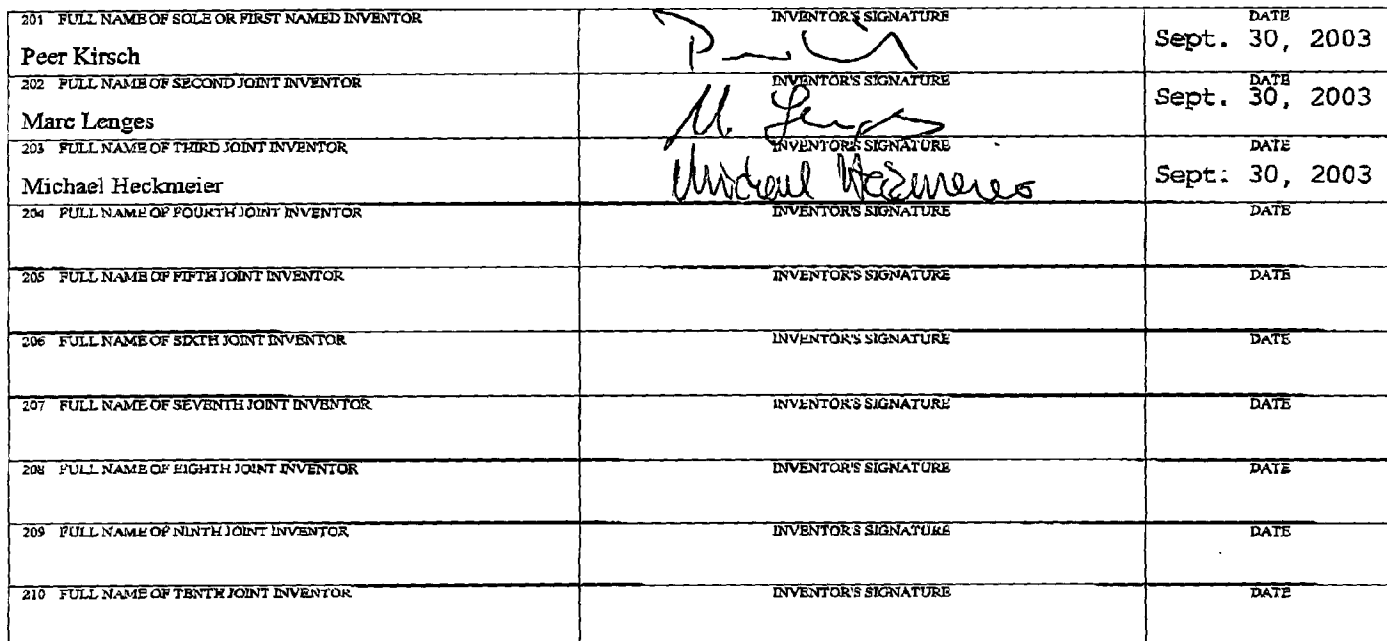 201 FULL NAME OF SOLE OR FIRST NAMED INVENTOR INVENTOR'S SIGNATURE DATE
Peer Kirsch Sept. 30, 2003
202 FULL NAME OF SECOND JOINT INVENTOR INVENTOR'S SIGNATURE DATE
Marc Lenges M. Lenges Sept. 30, 2003
203 FULL NAME OF THIRD JOINT INVENTOR INVENTOR'S SIGNATURE DATE
Michael Heckmeier Michael Heckmeier Sept. 30, 2003
204 FULL NAME OF FOURTH JOINT INVENTOR INVENTOR'S SIGNATURE DATE
205 FULL NAME OF FIFTH JOINT INVENTOR INVENTOR'S SIGNATURE DATE
206 FULL NAME OF SIXTH JOINT INVENTOR INVENTOR'S SIGNATURE DATE
207 FULL NAME OF SEVENTH JOINT INVENTOR INVENTOR'S SIGNATURE DATE
208 FULL NAME OF EIGHTH JOINT INVENTOR INVENTOR'S SIGNATURE DATE
209 FULL NAME OF NINTH JOINT INVENTOR INVENTOR'S SIGNATURE DATE
210 FULL NAME OF TENTH JOINT INVENTOR INVENTOR'S SIGNATURE DATE